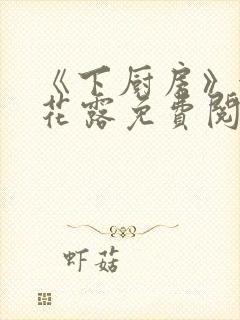 《下厨房》
花露免費閱
虾菇